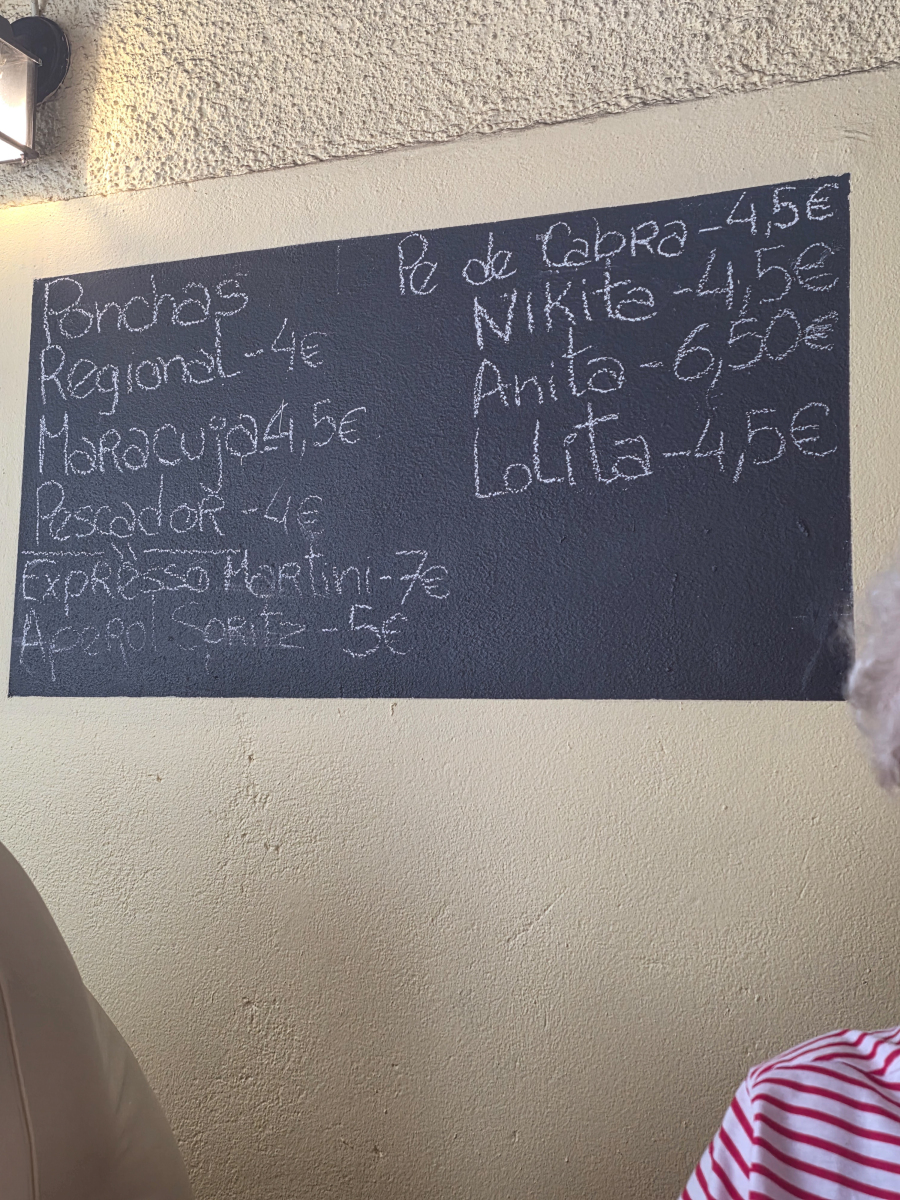 Ponchas
Regional - 4€
Maracuja 4,5€
Pescador - 4€
Expresso Martini - 7€
Aperol Spritz - 5€
Pe de Cabra - 4,5€
Nikita - 4,5€
Anita - 6,50€
Lolita - 4,5€